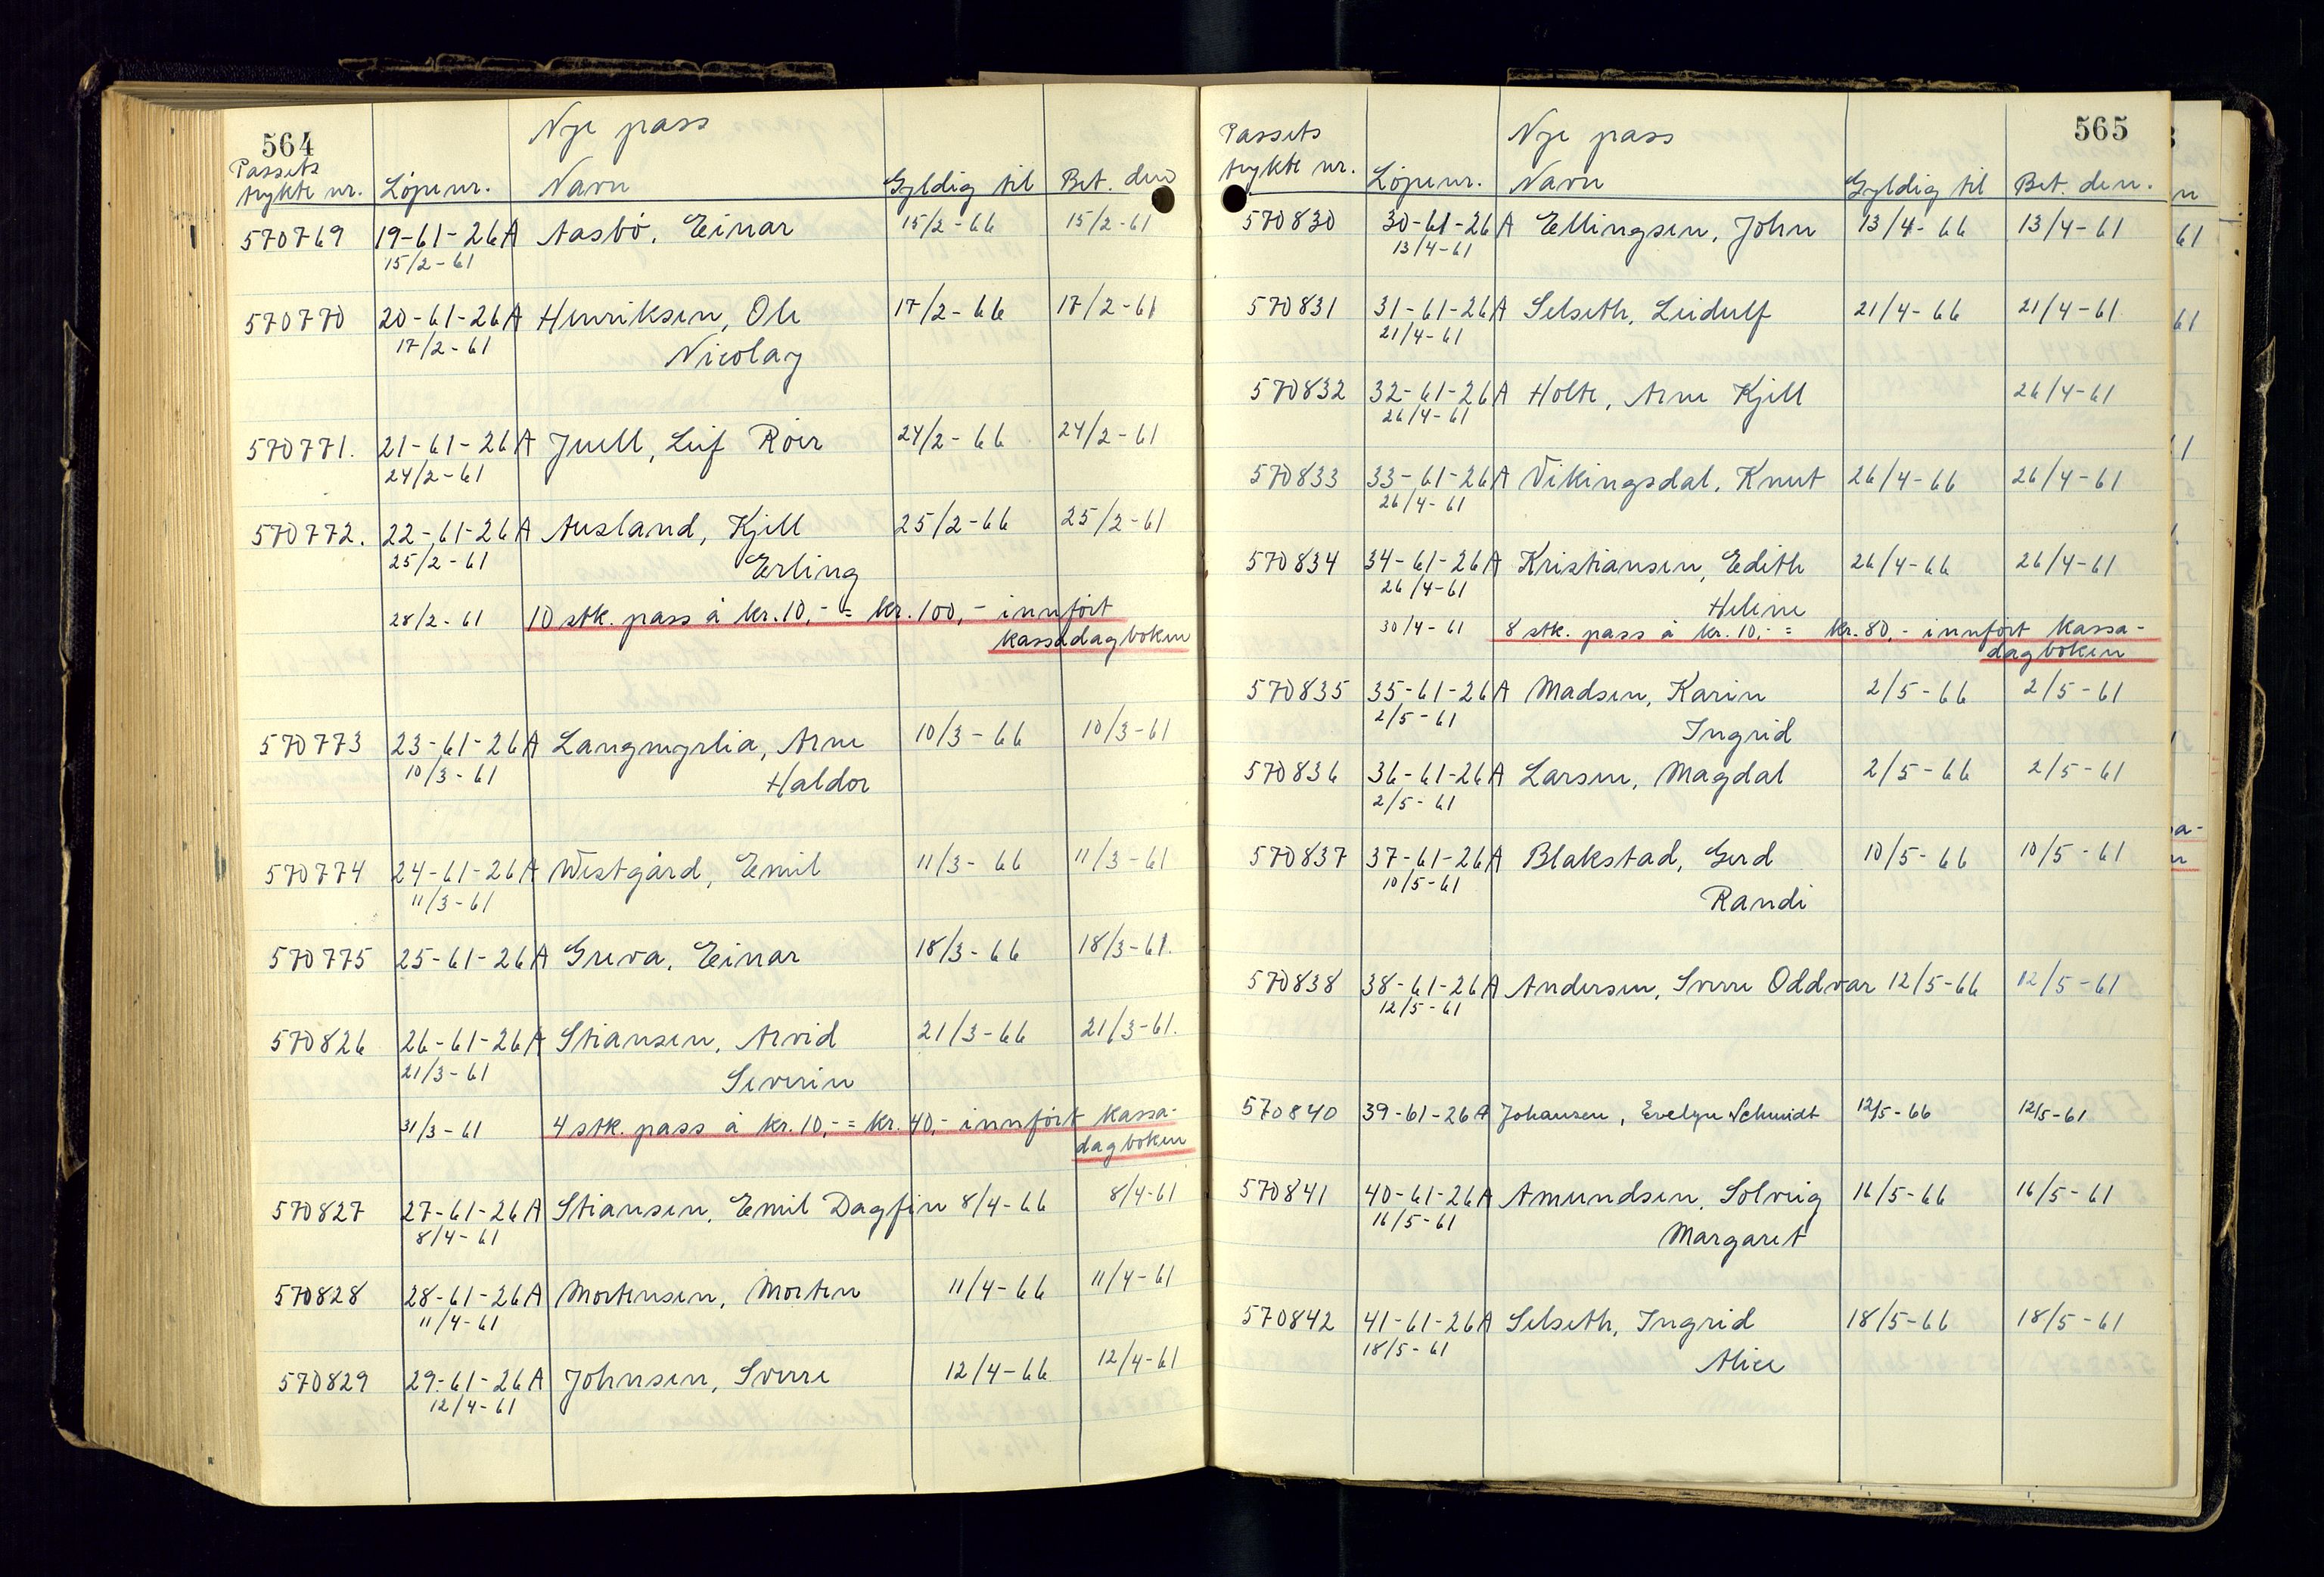 564
Nye pass
Passets
trykte nr. Löpenr. Navn Gyldig til Bet. den
570769 19-61-26A Aasbö, Einar 15/2-66 15/2-61
15/2-61
570770 20-61-26A Henriksen, Ole 17/2-66 17/2-61
17/2-61 Nicolay
570771. 21-61-26A Juell, Leif Roer 24/2-66 24/2-61
24/2-61
570772. 22-61-26A Ausland, Kjell 25/2-66 25/2-61
25/2-61 Erling
28/2-61 10 stk. pass á kr. 10,- = kr. 100,- innfört
kassadagboken
570773 23-61-26A Langmyrlia, Arne 10/3-66 10/3-61
10/3-61 Haldor
570774 24-61-26A Westgård, Emil 11/3-66 11/3-61
11/3-61
570775 25-61-26A Greva, Einar 18/3-66 18/3-61.
570826 26-61-26A Stiansen, Arvid 21/3-66 21/3-61.
21/3-61 Severin
31/3-61 4 stk. pass á kr. 10,- = kr. 40,- innfört kassa-
dagboken
570827 27-61-26A Stiansen, Emil Dagfin 8/4-66 8/4-61
8/4-61
570828 28-61-26A Mortensen, Morten 11/4-66 11/4-61
11/4-61
570829 29-61-26A Johnsen, Sverre 12/4-66 12/4-61
12/4-61
565
Passets Nye pass
trykte nr. Löpenr. Navn Gyldig til Bet. den.
570830 30-61-26A Ellingsen, John 13/4-66 13/4-61
13/4-61
570831 31-61-26A Selseth, Leidulf 21/4-66 21/4-61
21/4-61
570832 32-61-26A Holte, Arne Kjell 26/4-61
26/4-61
570833 33-61-26A Vikingsdal, Knut 26/4-66 26/4-61
26/4-61
570834 34-61-26A Kristiansen, Edith 26/4-66 26/4-61
26/4-61 Helene
30/4-61 8 stk. pass á kr. 10,- = kr. 80,- innfört kassa-
dagboken
570835 35-61-26A Madsen, Karin 2/5-66 2/5-61
2/5-61 Ingrid
570836 36-61-26A Larsen, Magdal 2/5-66 2/5-61
2/5-61
570837 37-61-26A Blakstad, Gerd 10/5-66 10/5-61
10/5-61 Randi
570838 38-61-26A Andersen, Sverre Oddvar 12/5-66 12/5-61
12/5-61
570840 39-61-26A Johansen, Evelyn Schmidt 12/5-66 12/5-61
570841 40-61-26A Amundsen, Solveig 16/5-66 16/5-61
16/5-61 Margaret
570842 41-61-26A Selseth, Ingrid 18/5-66 18/5-61
18/5-61 Alice